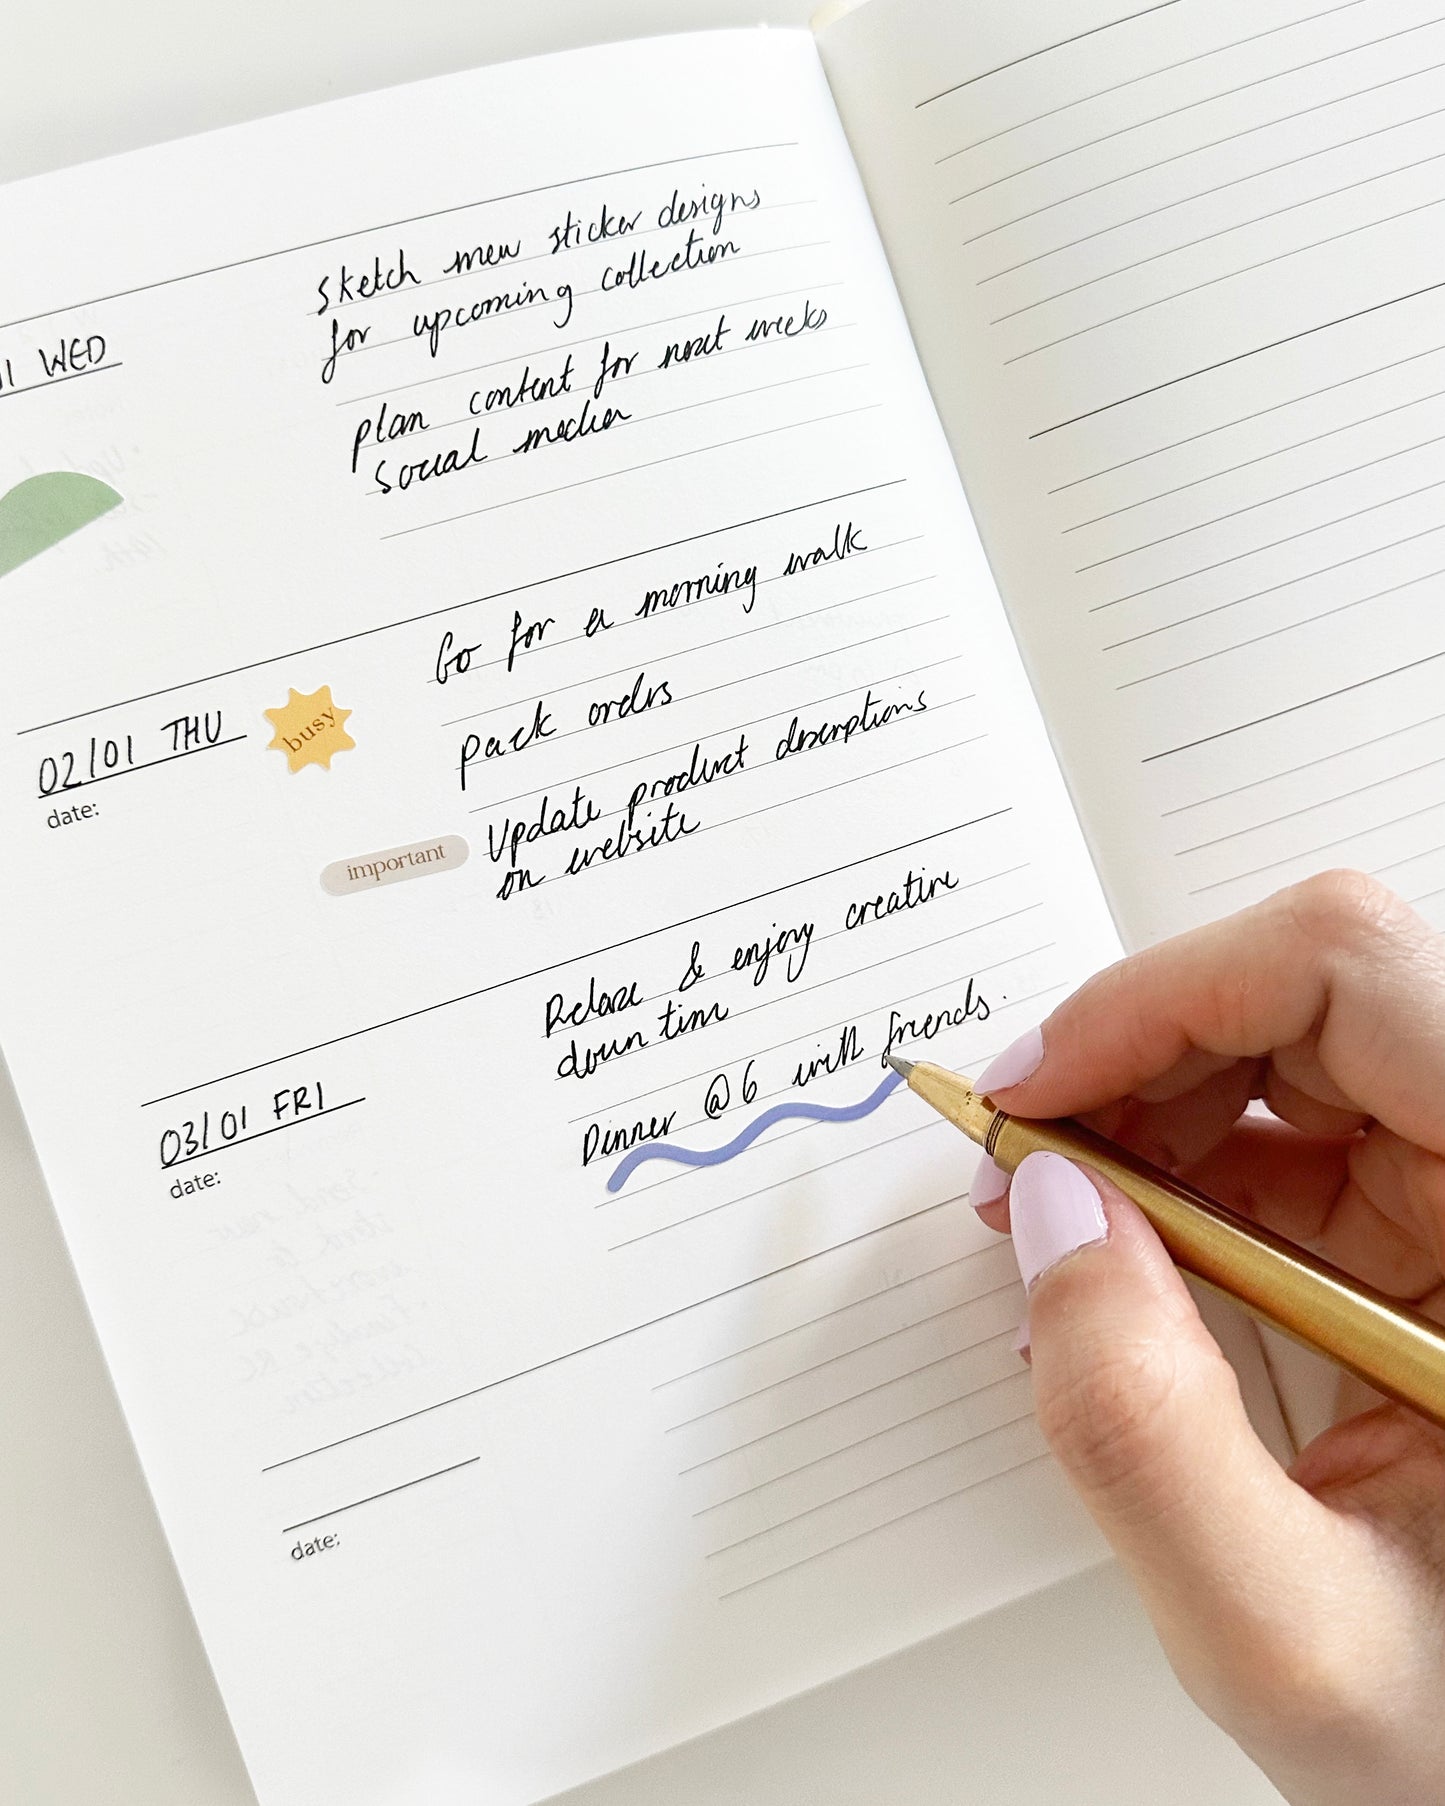 Sketch new sticker designs
for upcoming collection
plan content for next weeks
social media
WED
Go for a morning walk
pack orders
Update product descriptions
on website
02/01 THU
busy
date:
important
Relax & enjoy creative
down time
Dinner @ 6 with friends.
03/01 FRI
date:
date: